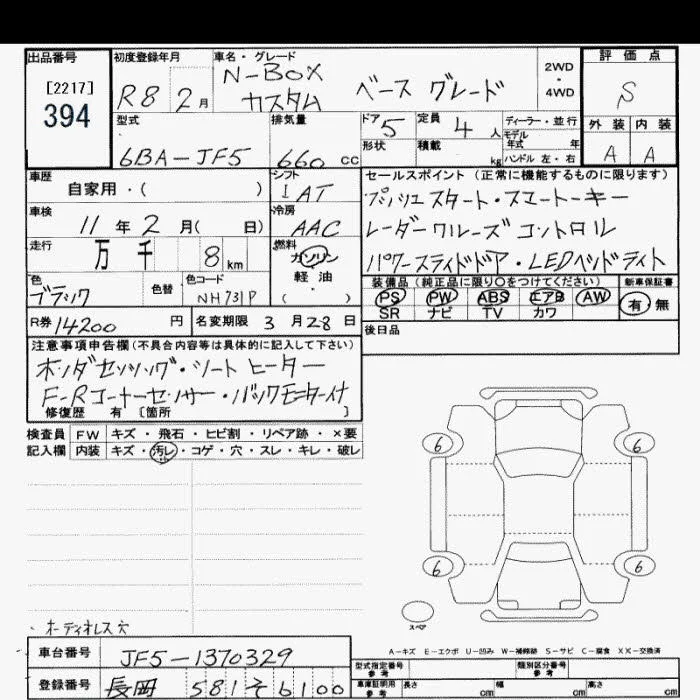 出品番号
[2217]
394
初度登録年月
R8 2月
車名・グレード
N-BOX
カスタム ベース グレード
2WD
・
4WD
評価点
S
外装 内装
A A
型式
6BA-JF5
排気量
660 cc
ドア 5
形状
定員 4人
積載 kg
ディーラー・並行
モデル
年式 年
ハンドル 左・右
車歴
自家用・( )
シフト
IAT
車検
11年2月( 日)
冷房
AAC
走行
万 千 8 km
燃料
ガソリン
軽油
・
( )
色
ブラック
色替
色コード
NH731P
R券 14200円
名変期限 3月28日
セールスポイント (正常に機能するものに限ります)
プッシュスタート・スマートキー
レーダークルーズコントロル
パワースライドドア・LEDヘッドライト
装備品(純正品に限り○をつけてください)
PS PW ABS エアB AW
SR ナビ TV カワ
新車保証書
有 無
後日品
注意事項申告欄(不具合内容等は具体的に記入して下さい)
ホンダセンシング・シートヒーター
F-Rコーナーセンサー・バックモニター付
修復歴 有 〔箇所 〕
検査員 FW キズ・飛石・ヒビ割・リペア跡・×要
記入欄 内装 キズ・汚レ・コゲ・穴・スレ・キレ・破レ
6 6
6 6
スペア
・オーディオレス穴
A－キズ E－エクボ U－凹み W－補修跡 S－サビ C－腐食 XX－交換済
車台番号
JF5-1370329
登録番号
長岡 581 そ 6100
型式指定番号
参考
類別区分番号
参考
車庫証明用
参考
長さ cm 幅 cm 高さ cm